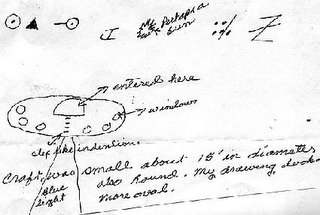 entered here
windows
step like indention.
Craft was small about 15' in diameter
Blue light
also Round. My drawing looks
more oval.